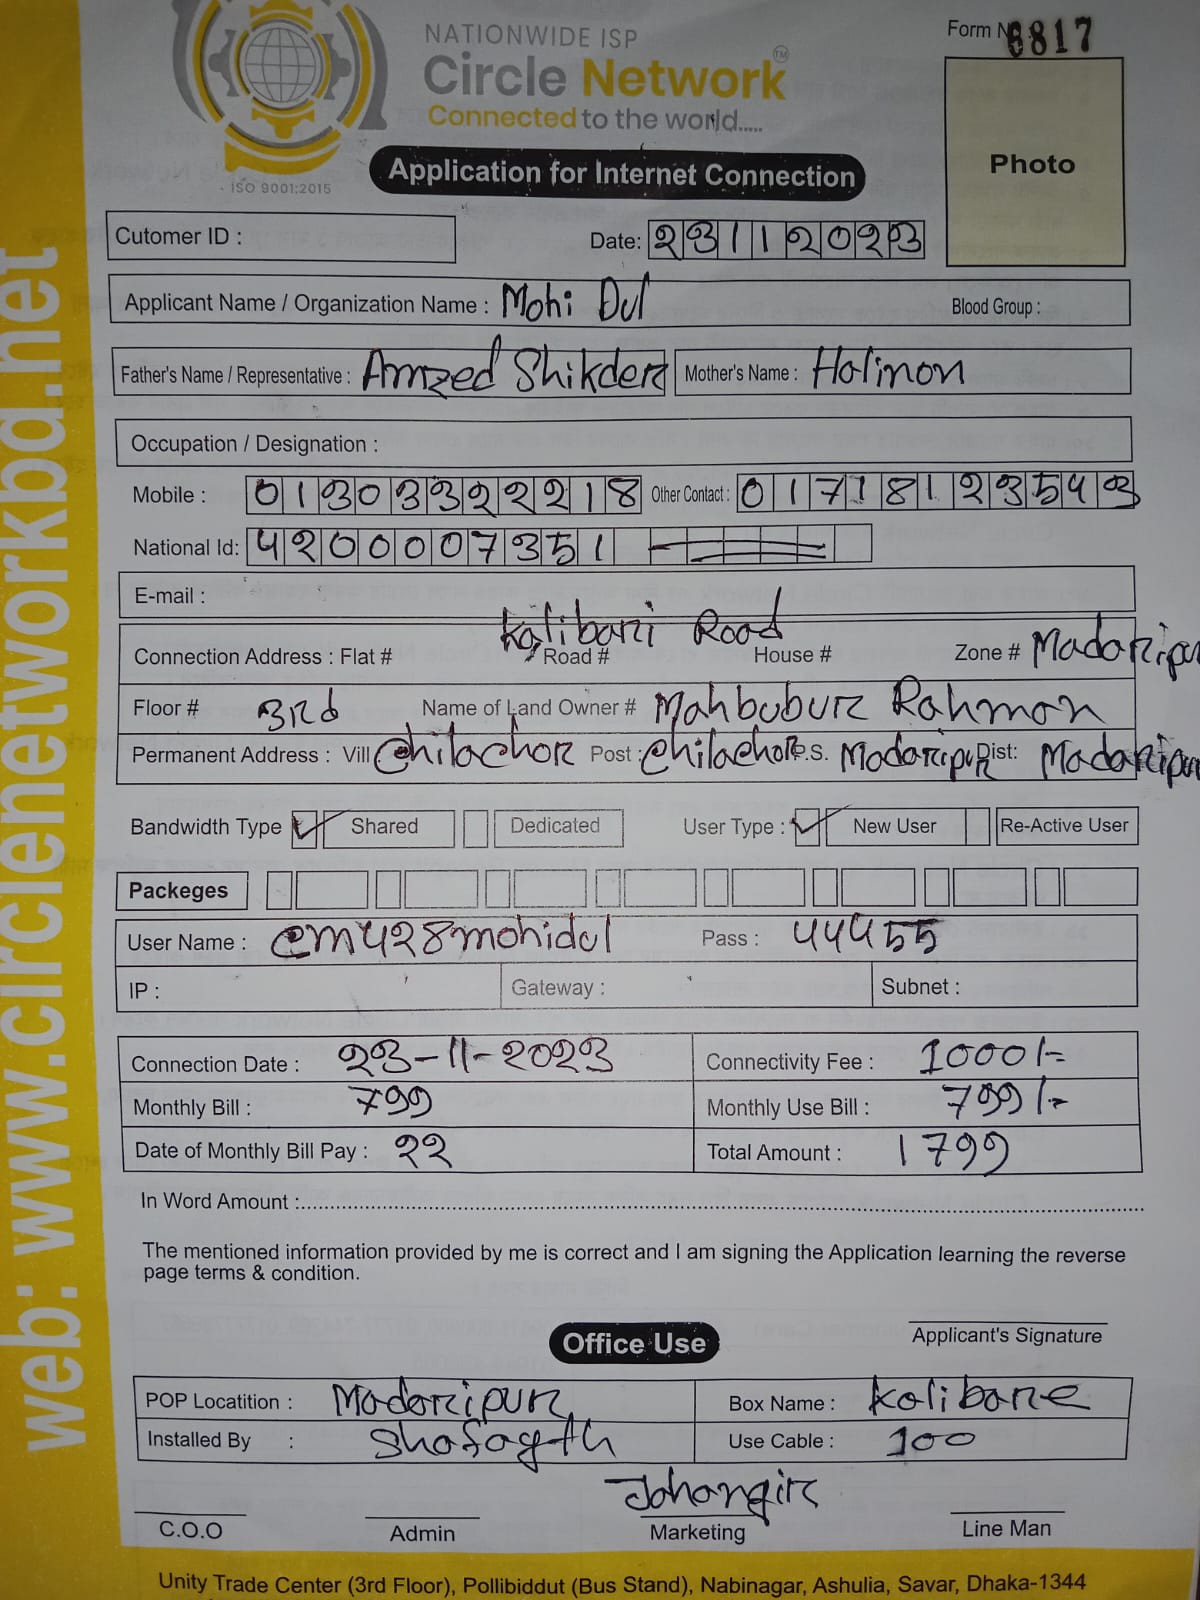 NATIONWIDE ISP
Circle Network TM
Connected to the world.....
ISO 9001:2015
Form N 6817
Photo
Application for Internet Connection
Cutomer ID :
Date: 23112023
Applicant Name / Organization Name : Mohi Dul Blood Group :
Father's Name / Representative : Amzed Shikder Mother's Name : Halimon
Occupation / Designation :
Mobile : 01303322218 Other Contact : 01718123543
National Id: 4200007351
E-mail :
Kalibari Road
Connection Address : Flat # Road # House # Zone # Madaripur
Floor # 3rd Name of Land Owner # Mahbubur Rahman
Permanent Address : Vill Chilachor Post : Chilachor P.S. Madaripur Dist: Madaripur
Bandwidth Type Shared Dedicated User Type : New User Re-Active User
Packeges
User Name : cm428mohidul Pass : 44455
IP : Gateway : Subnet :
Connection Date : 23-11-2023 Connectivity Fee : 1000/-
Monthly Bill : 799 Monthly Use Bill : 799/-
Date of Monthly Bill Pay : 22 Total Amount : 1799
In Word Amount :
The mentioned information provided by me is correct and I am signing the Application learning the reverse
page terms & condition.
Applicant's Signature
Office Use
POP Locatition : Madaripur Box Name : Kalibare
Installed By : Use Cable : 100
Jahangir
C.O.O Admin Marketing Line Man
Unity Trade Center (3rd Floor), Pollibiddut (Bus Stand), Nabinagar, Ashulia, Savar, Dhaka-1344
web: www.circlenetworkbd.net